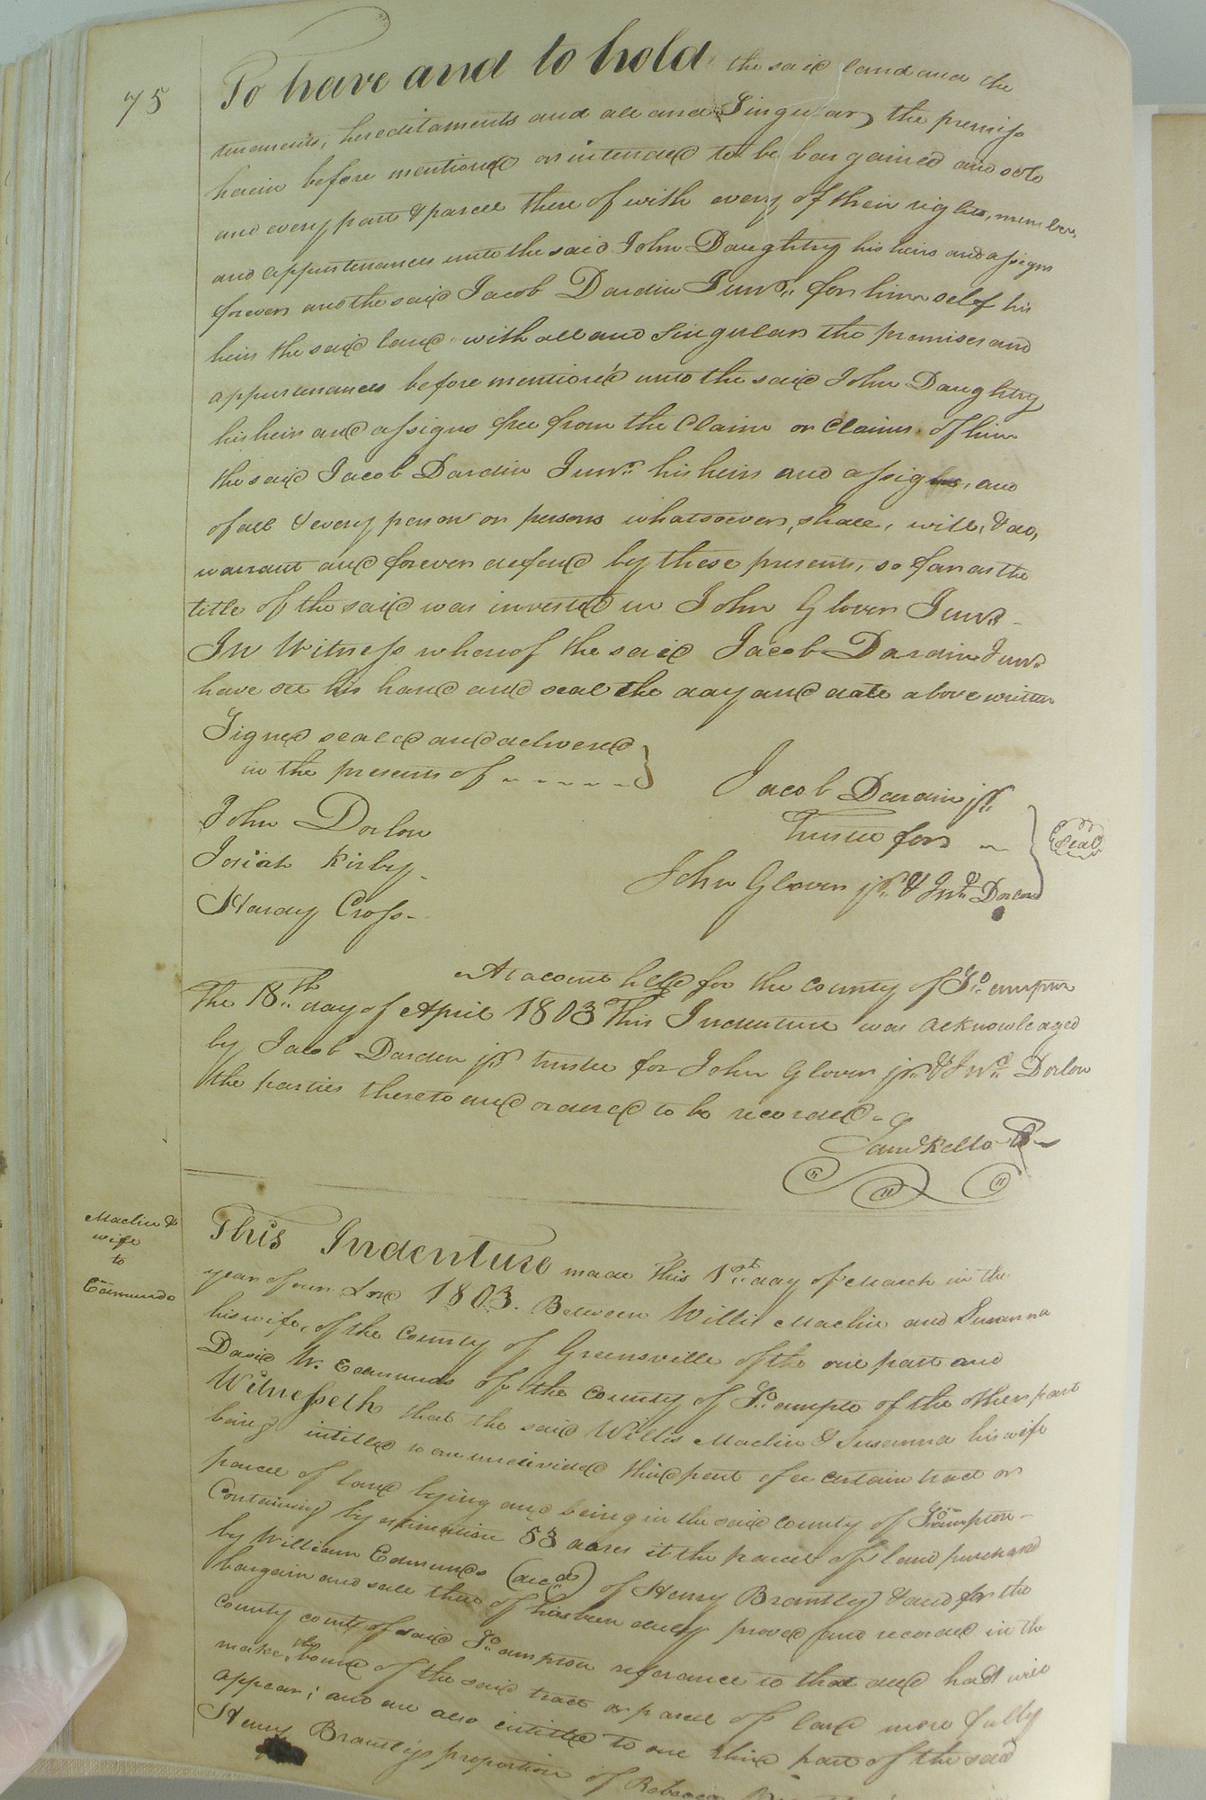 75
To have and to hold the said land and the
tenements, hereditaments and all and Singular, the premiss
herein before mentioned or intended to be bargained and sold
and every part & parcel there of with every of their rights, members,
and appurtenances unto the said John Daughtry his heirs and assigns
forever and the said Jacob Dardin Junr. for him self his
heirs the said land with all and Singular the premises and
appurtenances before mention'd unto the said John Daughtry
his heirs and assigns free from the Claim or Claims of him
the said Jacob Dardin Junr. his heirs and assigns, and
of all & every person or persons whatsoever, shall, will, & do,
warrant and forever defend by these presents, so far as the
title of the said was invested in John Glover Junr.
In Witness whereof the said Jacob Dardin Junr
have set his hand and seal the day and date above written
Signed sealed and delivered
in the presents of
Jacob Dardin jr.
Trustee for
John Glover jr. & Jno. Dorlon
Seal
John Dorlon
Josiah Kirby
Hardy Cross
At a court held for the County of So.ampton
the 18th. day of April 1803 This Indenture was acknowledged
by Jacob Darden jr trustee for John Glover jr. & Jno. Dorlon
the parties thereto and ordered to be recorded
Saml Kello
Maclin &
wife
to
Edmunds
This Indenture made this 1st. day of March in the
year of our Lord 1803. Between Willis Maclin and Susanna
his wife, of the County of Greensville of the one part and
David W. Edmunds of the County of So.ampto of the other part
Witnesseth that the said Willis Maclin & Susanna his wife
being intitled to one undivided third part of a certain tract or
parcel of land lying and being in the said County of So.ampton
Containing by estimation 53 acres it the parcel of land purchased
by William Edmunds (decd) of Henry Brantley & and for the
bargain and sale there of has been duly proved and recorded in the
County court of said So.ampton referance to that deed had will
make the bounds of the said tract or parcel of land more fully
appear; and are also intitled to one third part of the said
Henry Brantleys proportion of Rebecca